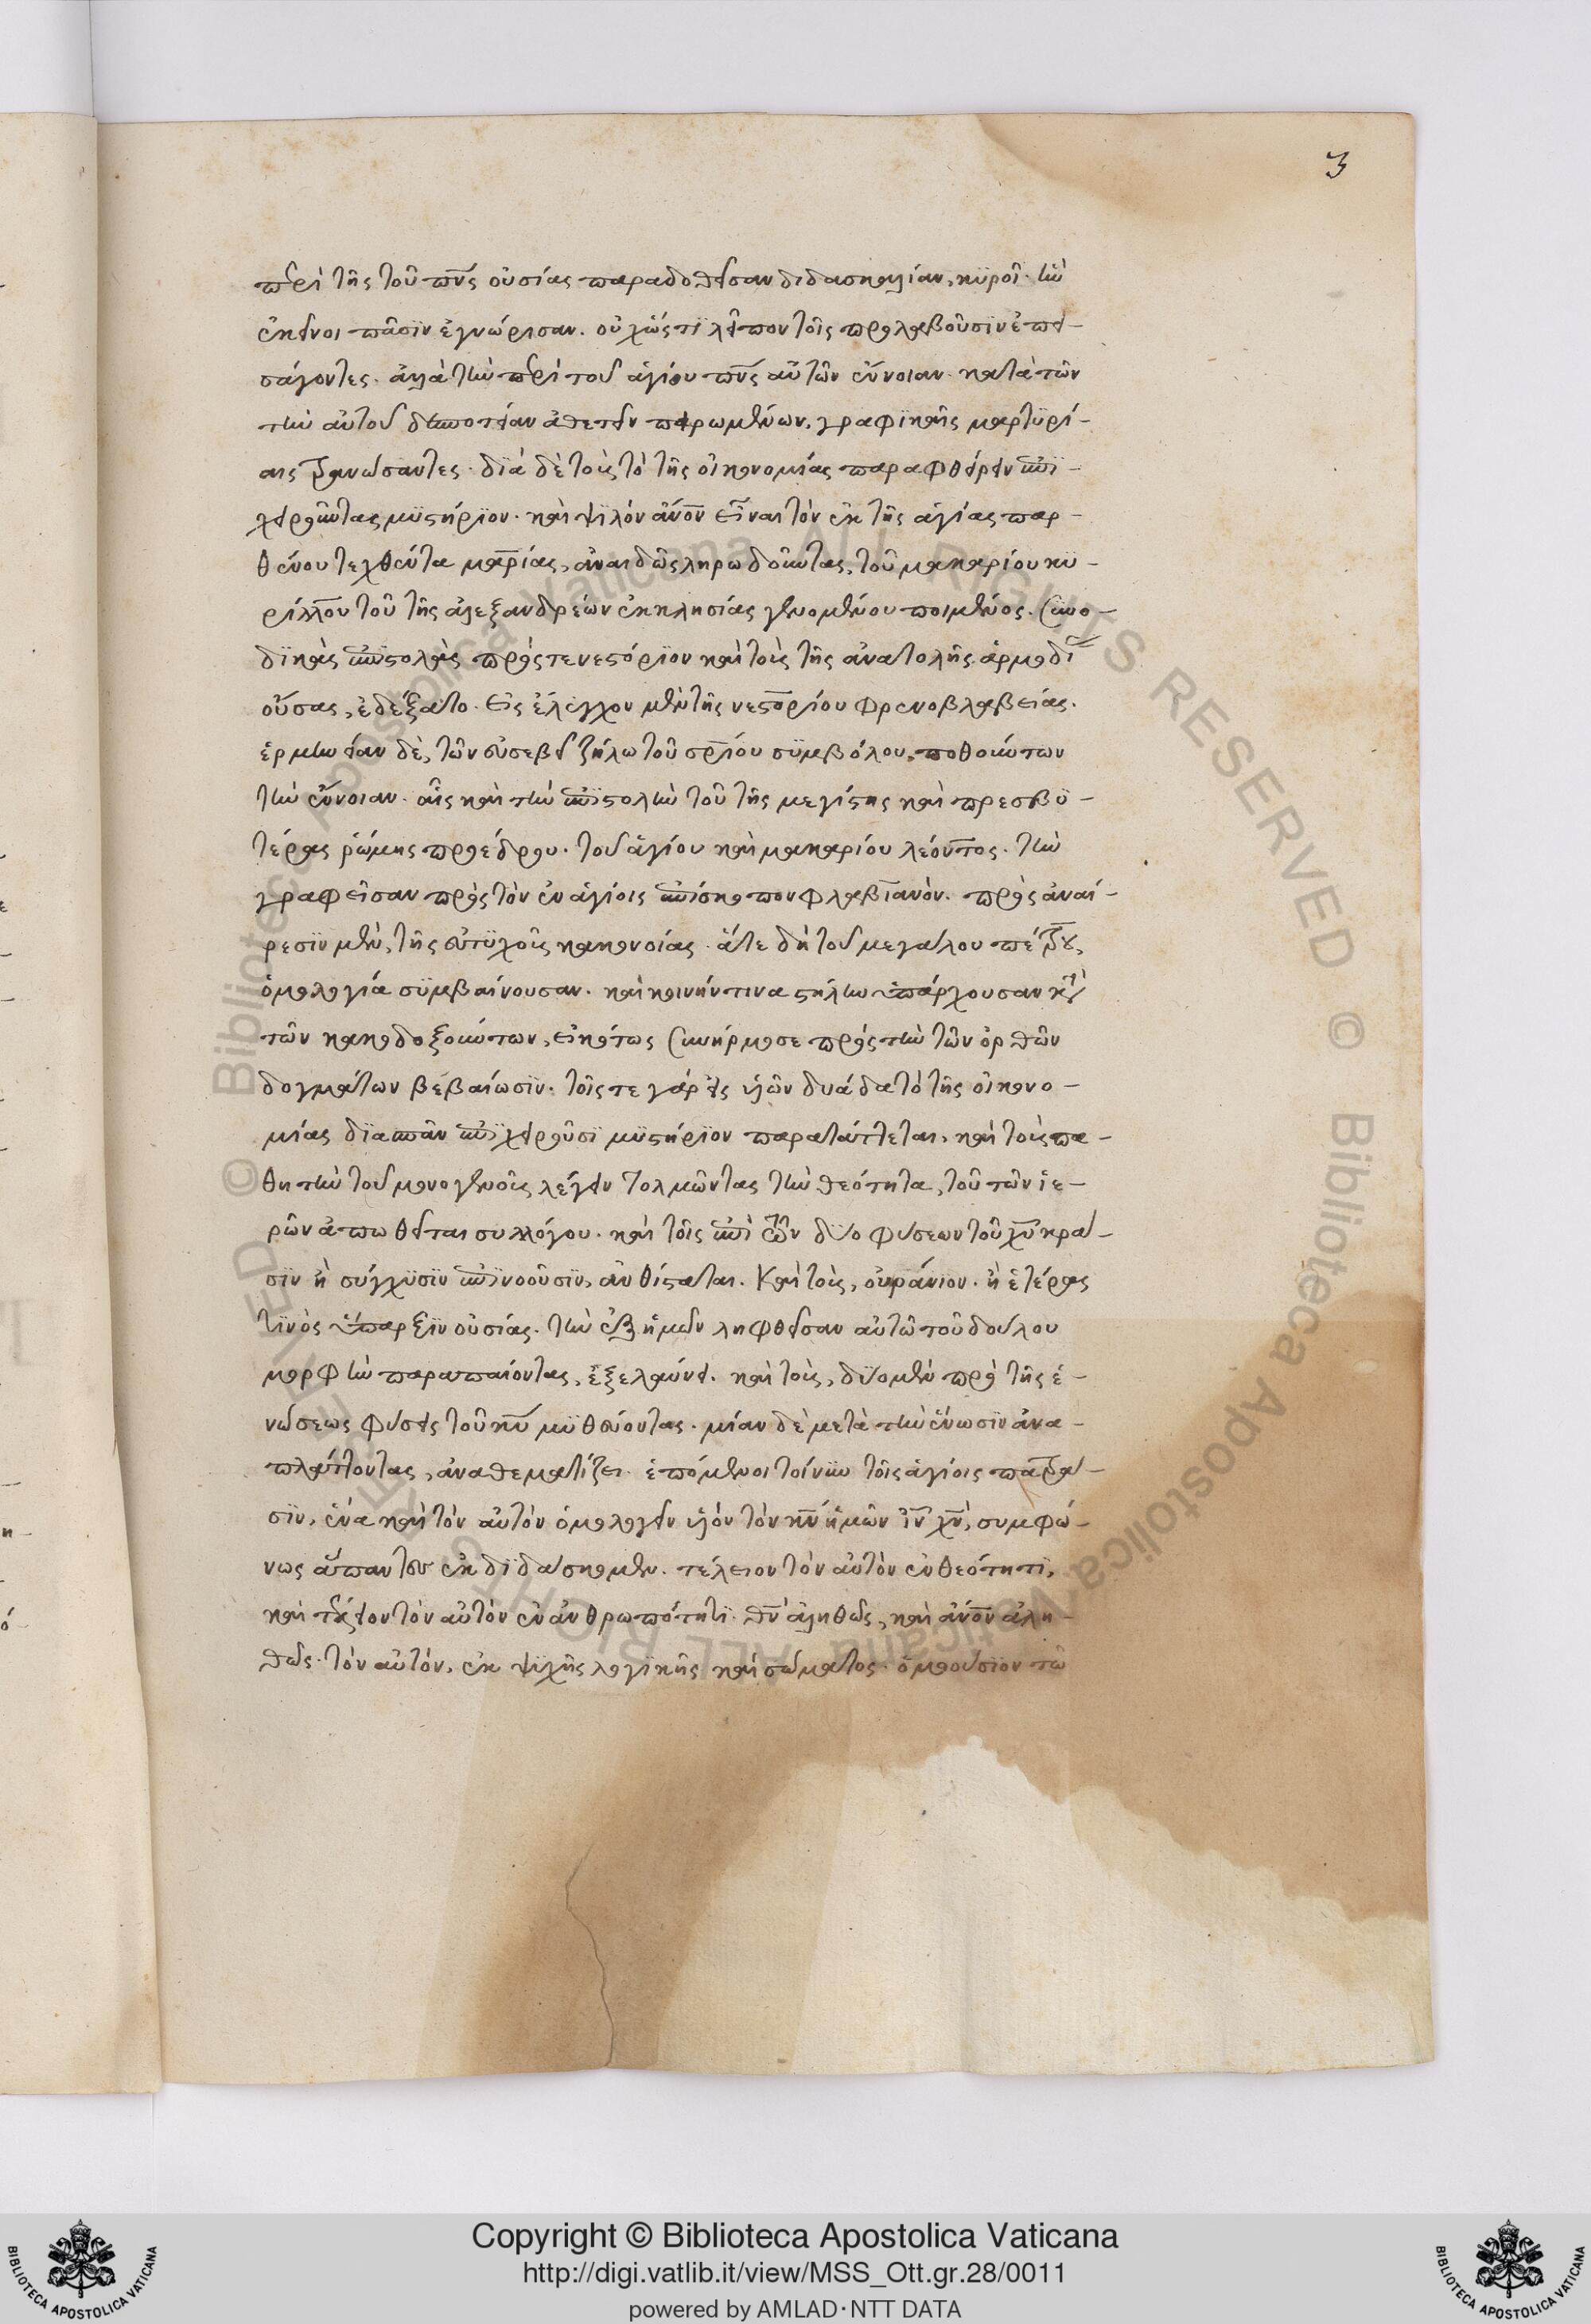 3
περὶ τῆς τοῦ πν̅ς οὐσίας παραδοθεῖσαν διδασκαλίαν, κϋροῖ· ἣν
ἐκεῖνοι πᾶσϊν ἐγνώρισαν. οὐχ ὥς τϊ λεῖπον τοῖς προλαβοῦσϊν ἐπει-
σάγοντες. ἀλλὰ τὴν περὶ τοῦ ἁγίου πν̅ς αὐτῶν ἔννοιαν κατὰ τῶν
τὴν αὐτοῦ δεσποτείαν ἀθετεῖν πειρωμένων, γραφϊκαῖς μαρτϋρί-
αις τρανώσαντες. δϊὰ δὲ τοὺς τὸ τῆς οἰκονομίας παραφθείρειν ἐπϊ-
χειροῦντας μϋστήρϊον. καὶ ψϊλὸν ἄν̅ον εἶναι τὸν ἐκ τῆς ἁγίας παρ-
θένου τεχθέντα μαρίας, ἀναιδῶς ληρωδοῦντας, τοῦ μακαρίου κυ-
ρίλλου τοῦ τῆς ἀλεξανδρέων ἐκκλησίας γενομένου ποιμένος. συνο-
δϊκὰς ἐπϊστολὰς πρός τε νεστόρϊον καὶ τοὺς τῆς ἀνατολῆς ἁρμοδϊ
οὔσας, ἐδέξατο. εἰς ἔλεγχον μὲν τῆς νεστορίου φρενοβλαβείας.
ἑρμηνείαν δὲ, τῶν εὐσεβεῖ ζήλω τοῦ σρίου σϋμβόλου ποθούντων
τὴν ἔννοιαν. αἷς καὶ τὴν ἐπϊστολὴν τοῦ τῆς μεγίστης καὶ πρεσβϋ-
τέρας ῥώμης προέδρου. τοῦ ἁγίου καὶ μακαρίου λέοντος. τὴν
γραφεῖσαν πρὸς τὸν ἐν ἁγίοις ἐπίσκοπον φλαβϊανὸν. πρὸς ἀναί-
ρεσϊν μὲν, τῆς εὐτϋχοῦς κακονοίας. ἅτε δὴ τοῦ μεγάλου πέτρου,
ὁμολογία σϋμβαίνουσαν. καὶ κοινήν τινα στήλην ὑπάρχουσαν κ(ατὰ)
τῶν κακοδοξούντων, εἰκότως συνήρμοσε πρὸς τὴν τῶν ὀρθῶν
δογμάτων βεβαίωσϊν. τοῖς τε γὰρ εἰς υἱῶν δυάδα τὸ τῆς οἰκονο-
μίας δϊασπᾶν ἐπϊχειροῦσϊ μϋστήρϊον παρατάττεται, καὶ τοὺς πα-
θητὴν τοῦ μονογενοῦς λέγειν τολμῶντας τὴν θεότητα, τοῦ τῶν ἱε-
ρῶν ἀπωθεῖται συλλόγου. καὶ τοῖς ἐπὶ τῶν δύο φύσεων τοῦ χ̅υ κρᾶ-
σϊν ἢ σύγχϋσϊν ἐπϊνοοῦσϊν, ἀνθίσταται. Καὶ τοὺς, οὐράνιον. ἢ ἑτέρας
τϊνὸς ὕπαρξϊν οὐσίας. τὴν ἐξ ἡμῶν ληφθεῖσαν αὐτῶ τοῦ δούλου
μορφὴν παραπαίοντας, ἐξελαύνει. καὶ τοὺς, δύο μὲν πρὸ τῆς ἑ-
νώσεως φύσεις τοῦ κ̅υ μϋθεύοντας. μίαν δὲ μετὰ τὴν ἕνωσϊν ἀνα-
πλάττοντας, ἀναθεματίζει. ἑπόμενοι τοίνυν τοῖς ἁγίοις πατρά-
σϊν, ἕνα καὶ τὸν αὐτὸν ὁμολογεῖν υἱὸν τὸν κ̅ν ἡμῶν ἰ̅ν χ̅ν, συμφώ-
νως ἅπαντες ἐκδϊδάσκομεν. τέλειον τὸν αὐτὸν ἐν θεότητϊ,
καὶ τέλειον τὸν αὐτὸν ἐν ἀνθρωπότητϊ. θ̅ν ἀληθῶς, καὶ ἄν̅ον ἀλη-
θῶς. τὸν αὐτὸν, ἐκ ψϋχῆς λογϊκῆς καὶ σώματος. ὁμοούσϊον τῶ
Copyright © Biblioteca Apostolica Vaticana
http://digi.vatlib.it/view/MSS_Ott.gr.28/0011
powered by AMLAD·NTT DATA